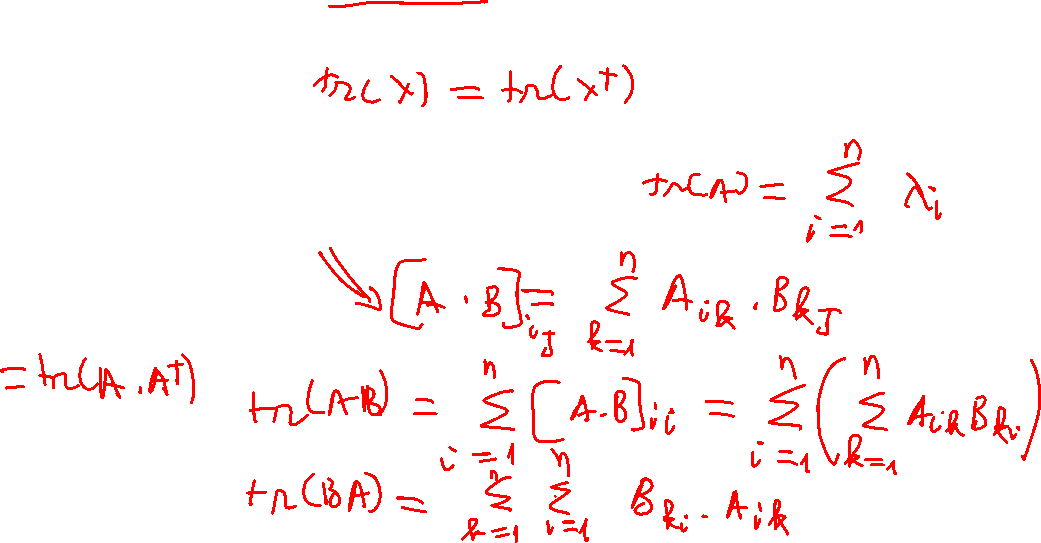 tr(X) = tr(X^T)
tr(A) = \sum_{i=1}^{n} λ_i
[A · B]_{iJ} = \sum_{k=1}^{n} A_{ik} · B_{kJ}
= tr(A · A^T)
tr(AB) = \sum_{i=1}^{n} [A · B]_{ii} = \sum_{i=1}^{n} ( \sum_{k=1}^{n} A_{ik} B_{ki} )
tr(BA) = \sum_{k=1}^{n} \sum_{i=1}^{n} B_{ki} · A_{ik}